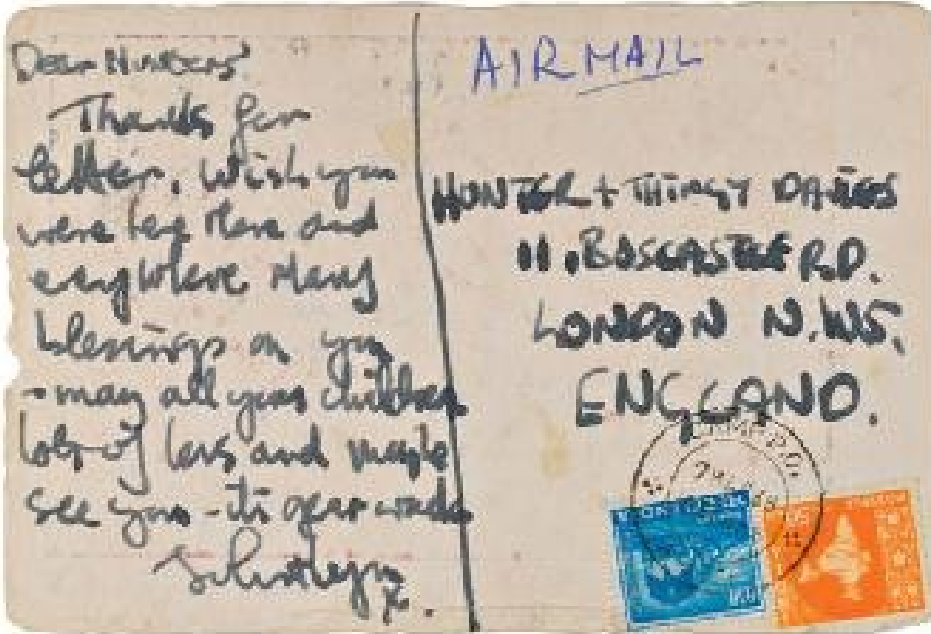 Dear Hunters
Thanks for
letter. Wish you
were here there and
everywhere Many
blessings on you
- may all your children
lots of love and maybe
see you -
AIR MAIL
HUNTER + THINGY DAVIES
11. BOSCASTLE RD.
LONDON N.W5.
ENGLAND.